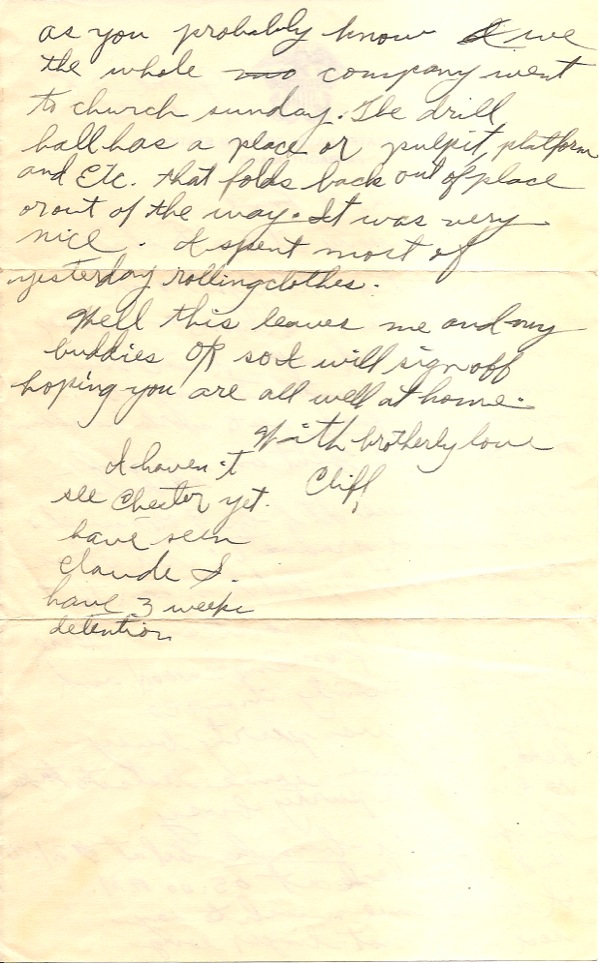 as you probably know I we
the whole mo company went
to church sunday. The drill
hall has a place or pulpit, platform
and Etc. that folds back out of place
or out of the way. It was very
nice. I spent most of
yesterday rolling clothes.
Well this leaves me and my
buddies OK so I will sign off
hoping you are all well at home.
With brotherly love
Cliff
I haven't
see Chester yet.
have seen
Claude S.
have 3 weeks
detention